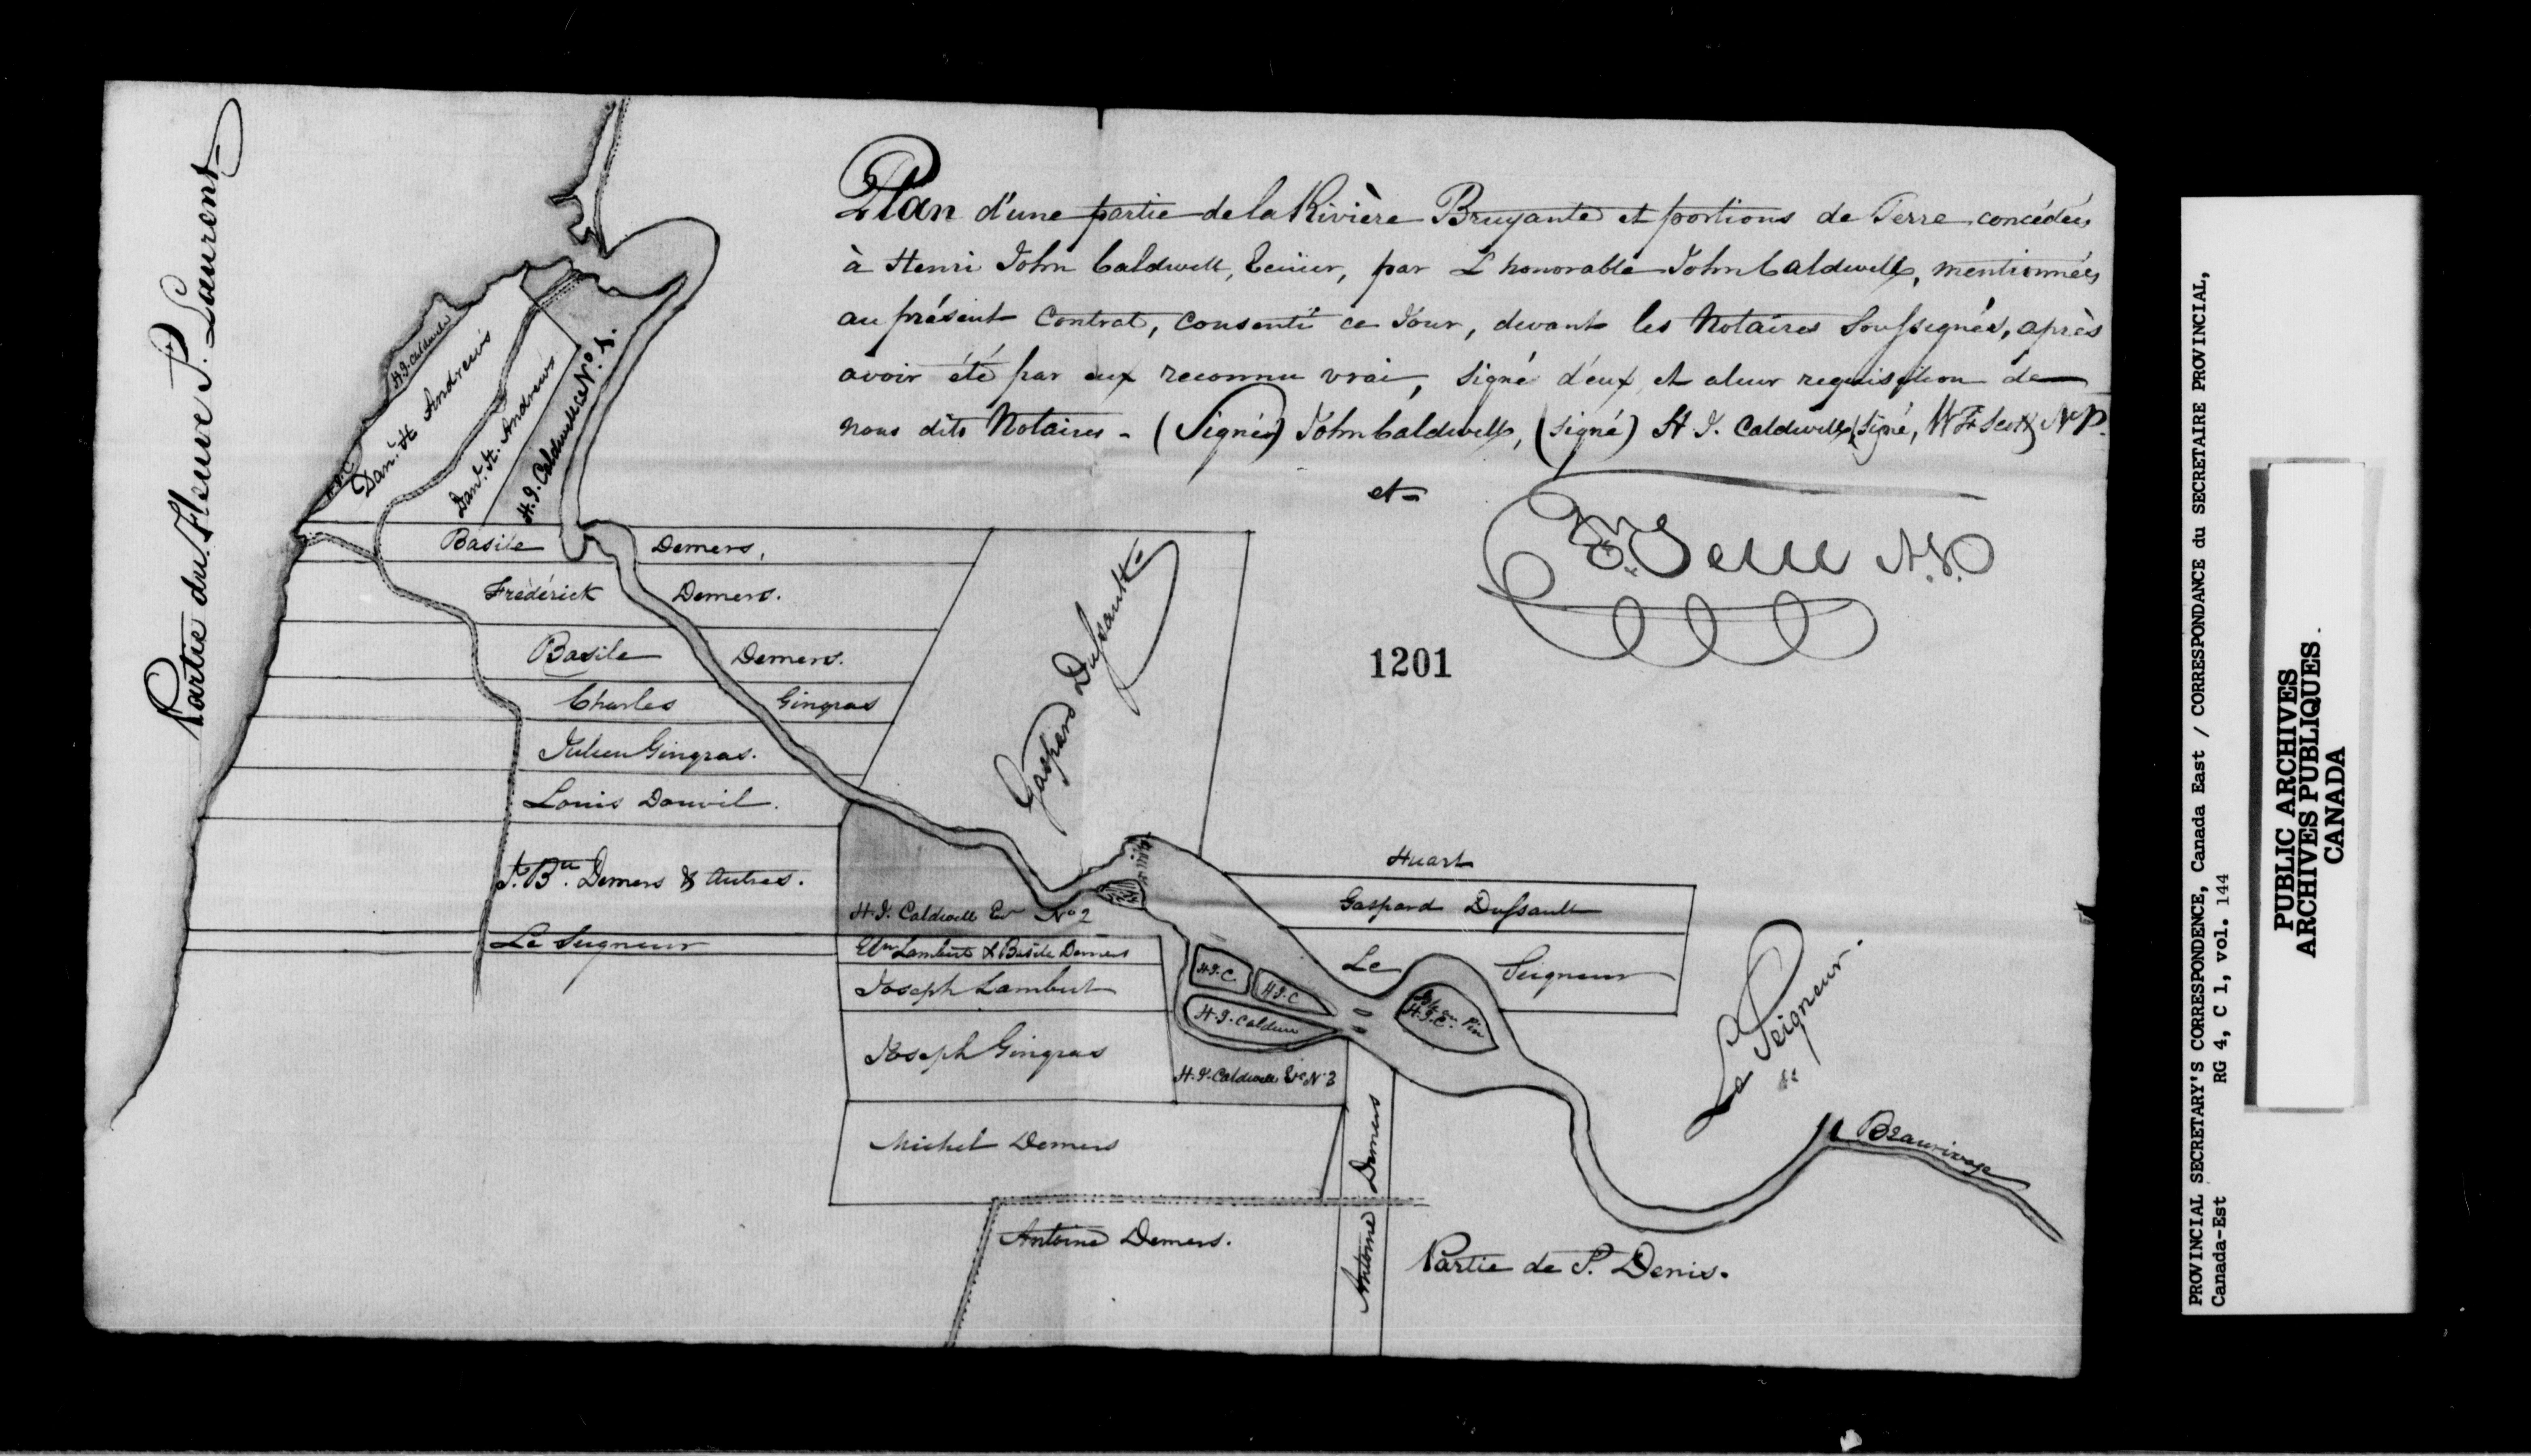 Plan d'une partie de la Rivière Bruyante et portions de Terre concédées
à Henri John Caldwell, Ecuier, par L'honorable John Caldwell, mentionnées
au présent Contrat, consenti ce Jour, devant les Notaires Soussignés, après
avoir été par eux reconnu vrai, signé d'eux et a leur requisition de
nous dits Notaires - (Signé) John Caldwell, (signé) H. J. Caldwell, signé, W. F. Scott N P.
et
N.P.
1201
Partie du Fleuve St. Laurent
H.J. Caldwell
H.J.C
Dan. H Andrews
Danl. H. Andrews
H.J. Caldwell Ec No. 1.
Basile Demers,
Frédérick Demers.
Basile Demers.
Charles Gingras
Julien Gingras.
Louis Douvil.
Jn. Bte. Demers & Autres.
Le Seigneur
Gaspard Dussault
H.J. Caldwell Er No 2
Wm Lambert & Basile Demers
Joseph Lambert
Joseph Gingras
Michel Demers
Antoine Demers.
H.J.C.
H.J.C
H.J. Caldwell
H.J. Caldwell Ec No 3
Huart
Gaspard Dussault
Le Seigneur
Isle au Pin
H.J.C.
Le Seigneur.
Beaurivage
Antoine Demers
Partie de St. Denis.
PROVINCIAL SECRETARY'S CORRESPONDENCE, Canada East / CORRESPONDANCE du SECRETAIRE PROVINCIAL,
Canada-Est RG 4, C 1, vol. 144
PUBLIC ARCHIVES
ARCHIVES PUBLIQUES.
CANADA